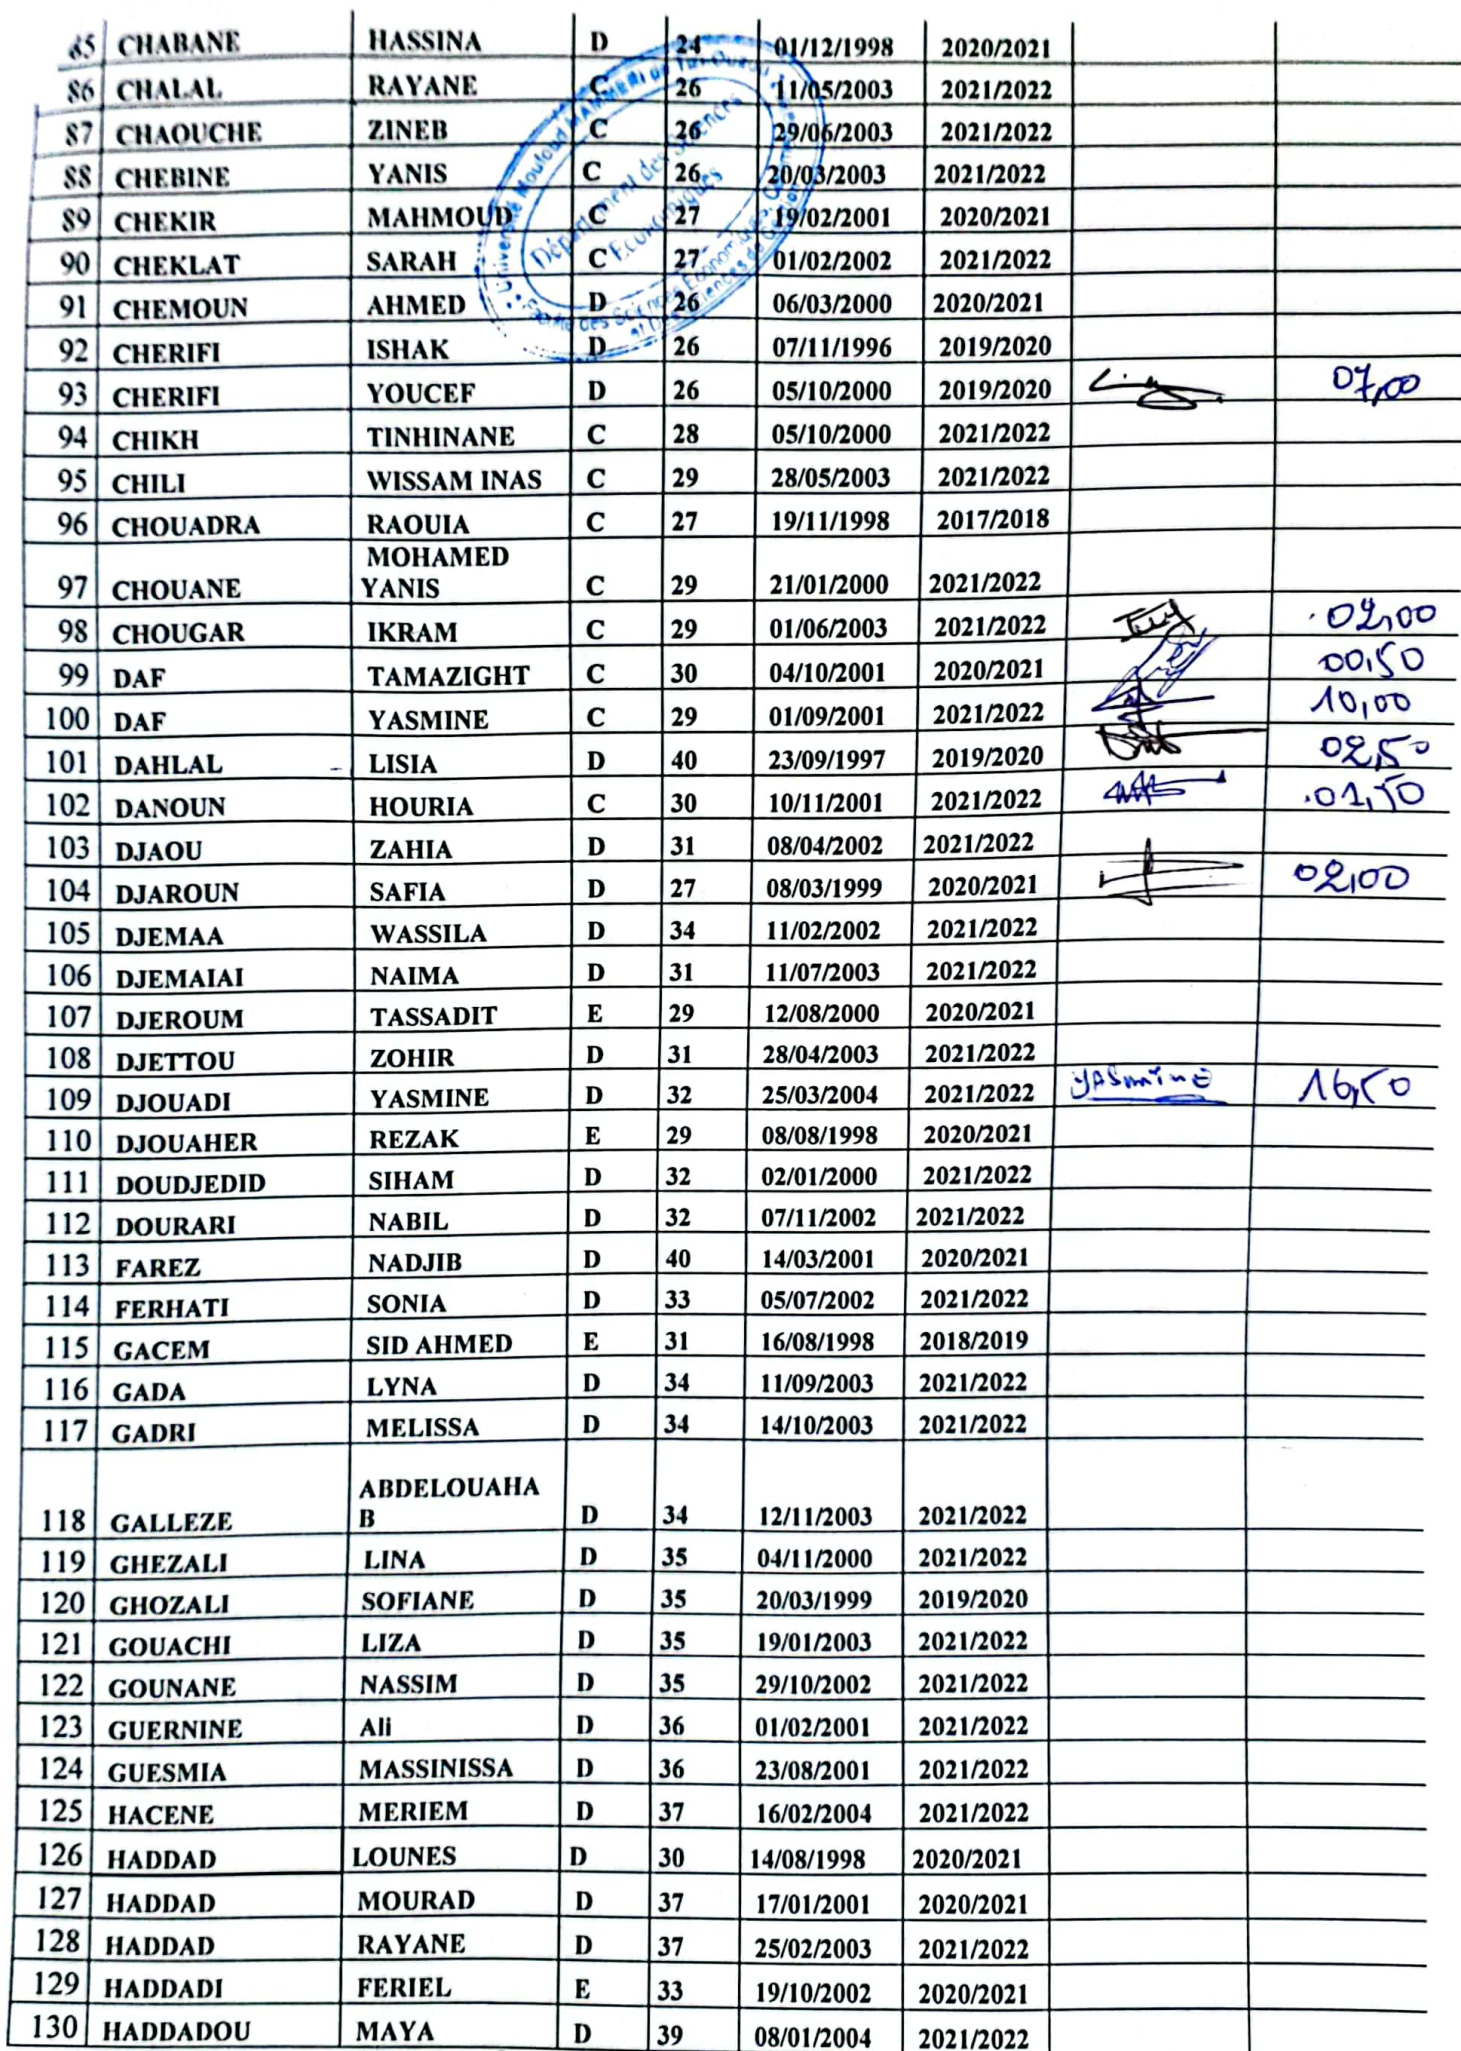 85 CHABANE HASSINA D 24 01/12/1998 2020/2021
86 CHALAL RAYANE C 26 11/05/2003 2021/2022
87 CHAOUCHE ZINEB C 26 29/06/2003 2021/2022
88 CHEBINE YANIS C 26 20/03/2003 2021/2022
89 CHEKIR MAHMOUD C 27 19/02/2001 2020/2021
90 CHEKLAT SARAH C 27 01/02/2002 2021/2022
91 CHEMOUN AHMED D 26 06/03/2000 2020/2021
92 CHERIFI ISHAK D 26 07/11/1996 2019/2020
93 CHERIFI YOUCEF D 26 05/10/2000 2019/2020 07,00
94 CHIKH TINHINANE C 28 05/10/2000 2021/2022
95 CHILI WISSAM INAS C 29 28/05/2003 2021/2022
96 CHOUADRA RAOUIA C 27 19/11/1998 2017/2018
MOHAMED
97 CHOUANE YANIS C 29 21/01/2000 2021/2022
98 CHOUGAR IKRAM C 29 01/06/2003 2021/2022 02,00
99 DAF TAMAZIGHT C 30 04/10/2001 2020/2021 00,50
100 DAF YASMINE C 29 01/09/2001 2021/2022 10,00
101 DAHLAL LISIA D 40 23/09/1997 2019/2020 02,50
102 DANOUN HOURIA C 30 10/11/2001 2021/2022 01,50
103 DJAOU ZAHIA D 31 08/04/2002 2021/2022
104 DJAROUN SAFIA D 27 08/03/1999 2020/2021 02,00
105 DJEMAA WASSILA D 34 11/02/2002 2021/2022
106 DJEMAIAI NAIMA D 31 11/07/2003 2021/2022
107 DJEROUM TASSADIT E 29 12/08/2000 2020/2021
108 DJETTOU ZOHIR D 31 28/04/2003 2021/2022
109 DJOUADI YASMINE D 32 25/03/2004 2021/2022 YASmine 16,50
110 DJOUAHER REZAK E 29 08/08/1998 2020/2021
111 DOUDJEDID SIHAM D 32 02/01/2000 2021/2022
112 DOURARI NABIL D 32 07/11/2002 2021/2022
113 FAREZ NADJIB D 40 14/03/2001 2020/2021
114 FERHATI SONIA D 33 05/07/2002 2021/2022
115 GACEM SID AHMED E 31 16/08/1998 2018/2019
116 GADA LYNA D 34 11/09/2003 2021/2022
117 GADRI MELISSA D 34 14/10/2003 2021/2022
ABDELOUAHA
118 GALLEZE B D 34 12/11/2003 2021/2022
119 GHEZALI LINA D 35 04/11/2000 2021/2022
120 GHOZALI SOFIANE D 35 20/03/1999 2019/2020
121 GOUACHI LIZA D 35 19/01/2003 2021/2022
122 GOUNANE NASSIM D 35 29/10/2002 2021/2022
123 GUERNINE Ali D 36 01/02/2001 2021/2022
124 GUESMIA MASSINISSA D 36 23/08/2001 2021/2022
125 HACENE MERIEM D 37 16/02/2004 2021/2022
126 HADDAD LOUNES D 30 14/08/1998 2020/2021
127 HADDAD MOURAD D 37 17/01/2001 2020/2021
128 HADDAD RAYANE D 37 25/02/2003 2021/2022
129 HADDADI FERIEL E 33 19/10/2002 2020/2021
130 HADDADOU MAYA D 39 08/01/2004 2021/2022
Université Mouloud MAMMERI de Tizi-Ouzou
Département des Sciences
Economiques
Faculté des Sciences Economiques, Commerciales
et Des Sciences de Gestion